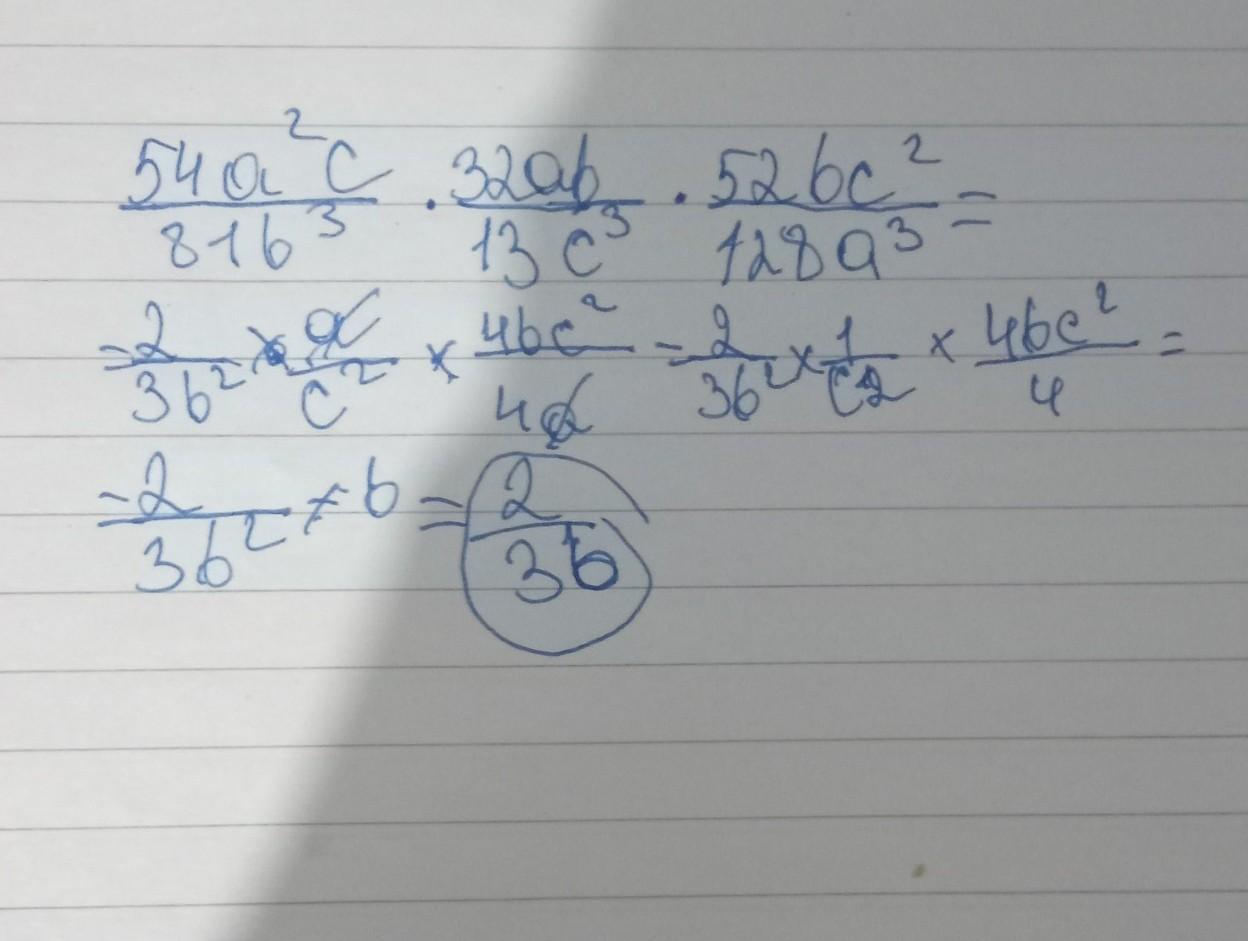 54a²c/81b³ · 32ab/13c³ · 52bc²/128a³ =
= 2/3b² × a/c² × 4bc²/4a = 2/3b² × 1/c2 × 4bc²/4 =
= 2/3b² × b = 2/3b